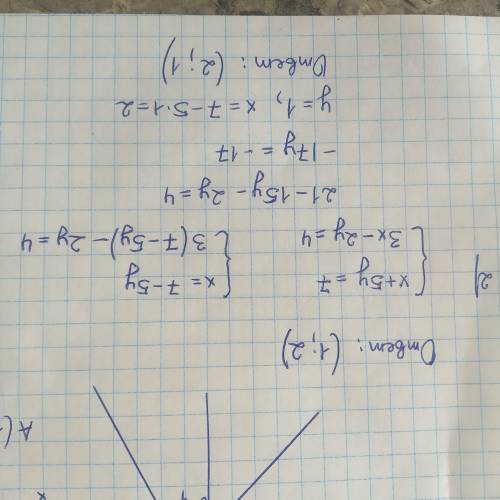 Ответ: (1; 2)
2) { x+5y=7 { x=7-5y
3x-2y=4 3(7-5y)-2y=4
21-15y-2y=4
-17y=-17
y=1, x=7-5·1=2
Ответ: (2; 1)